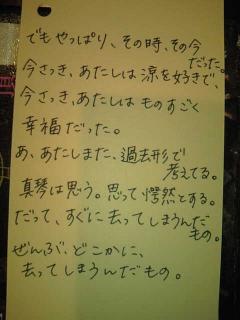 でもやっぱり、その時、その今
だった。
今さっき、あたしは涼を好きで、
今さっき、あたしは ものすごく
幸福だった。
あ、あたしまだ、過去形で
考えてる。
真琴は思う。思って愕然とする。
だって、すぐに去ってしまうんだ
もの。
ぜんぶ、どこかに、
去ってしまうんだもの。